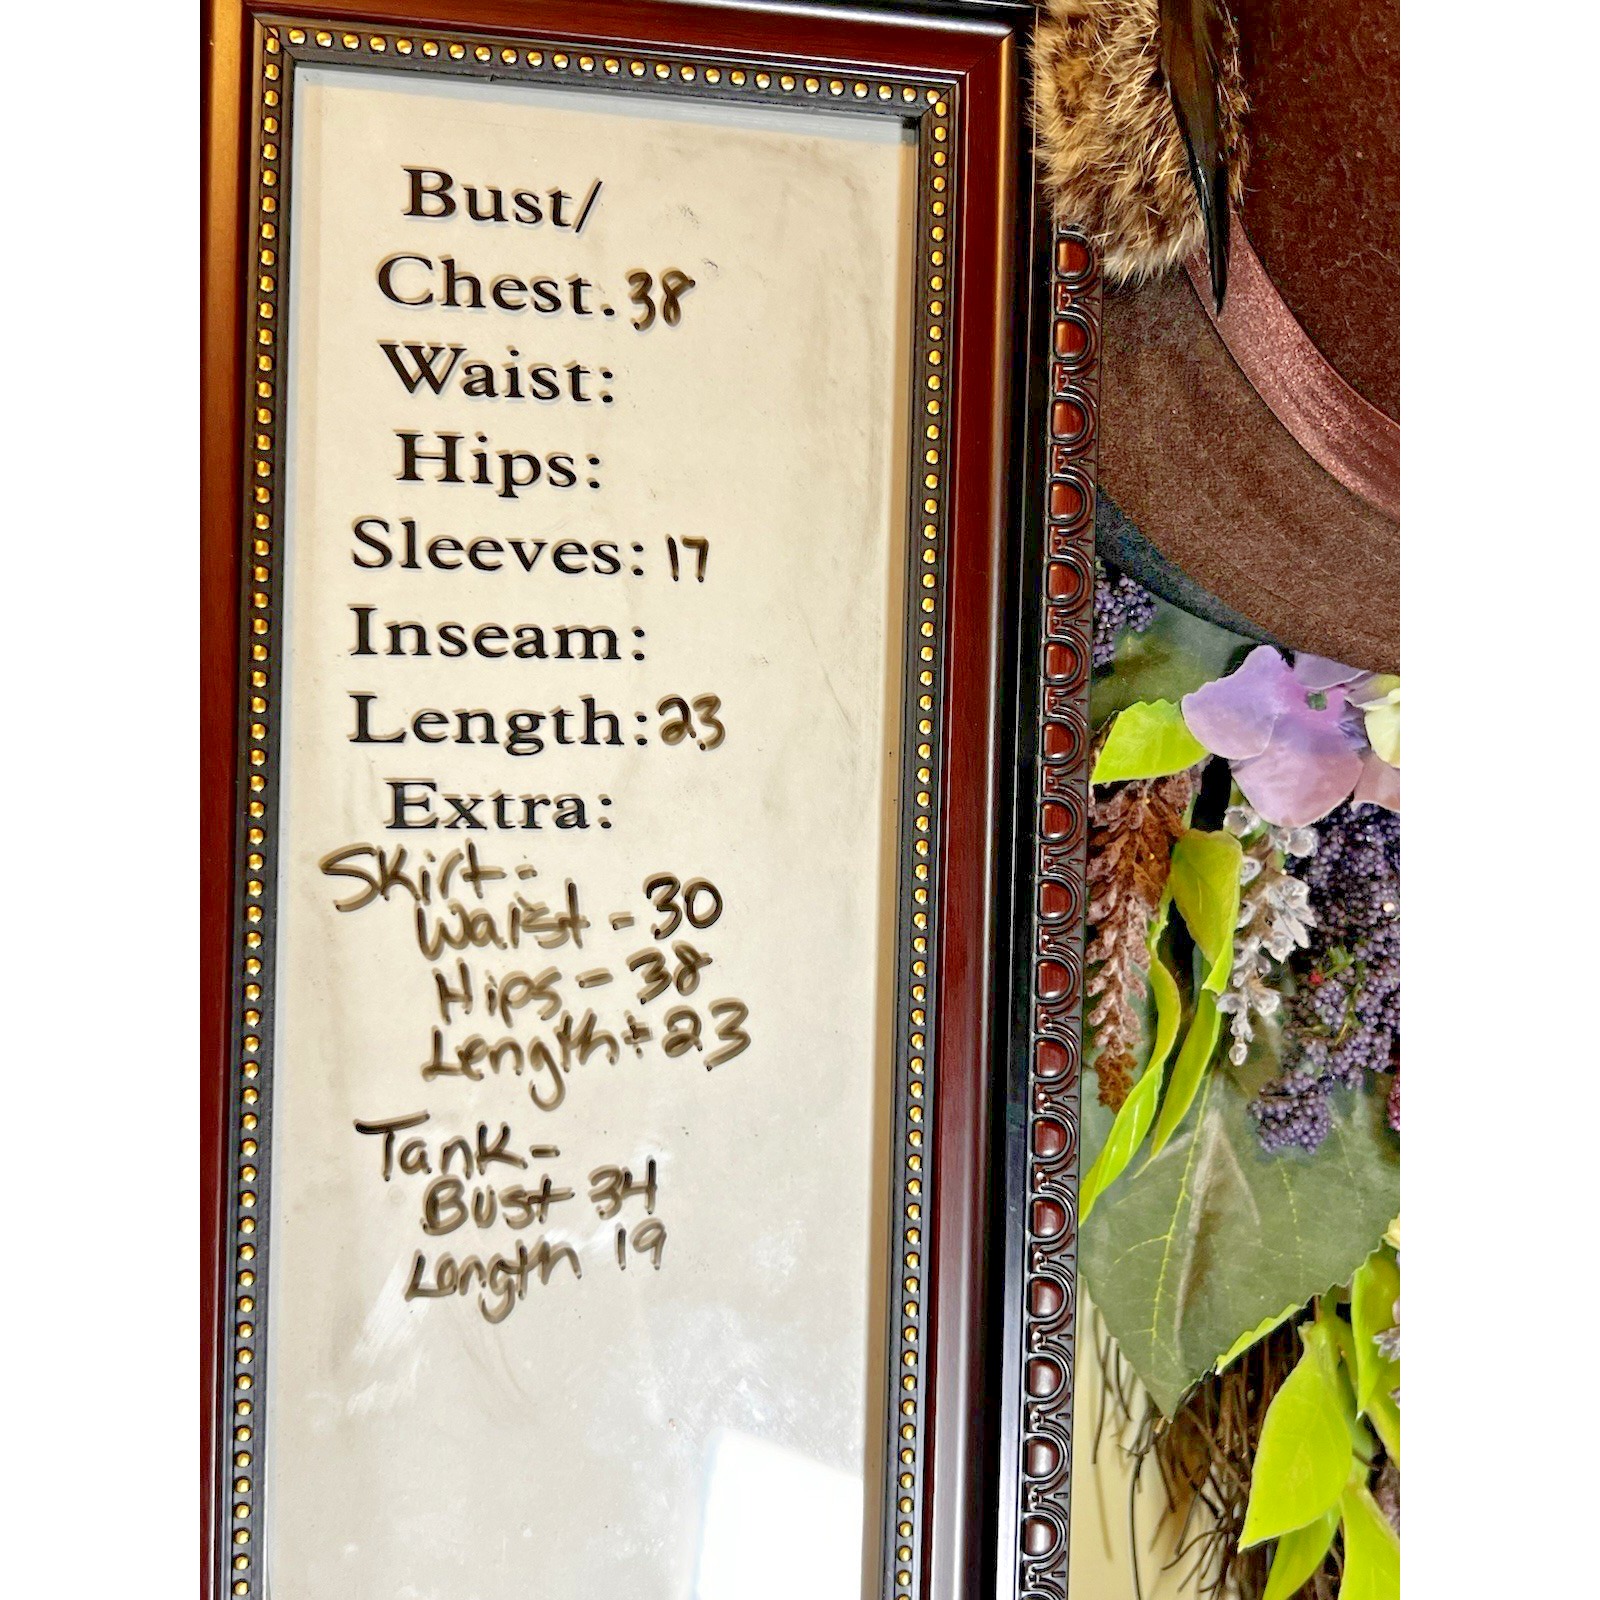 Bust/
Chest. 38
Waist:
Hips:
Sleeves: 17
Inseam:
Length: 23
Extra:
Skirt-
Waist - 30
Hips - 38
Length - 23
Tank-
Bust 34
Length 19